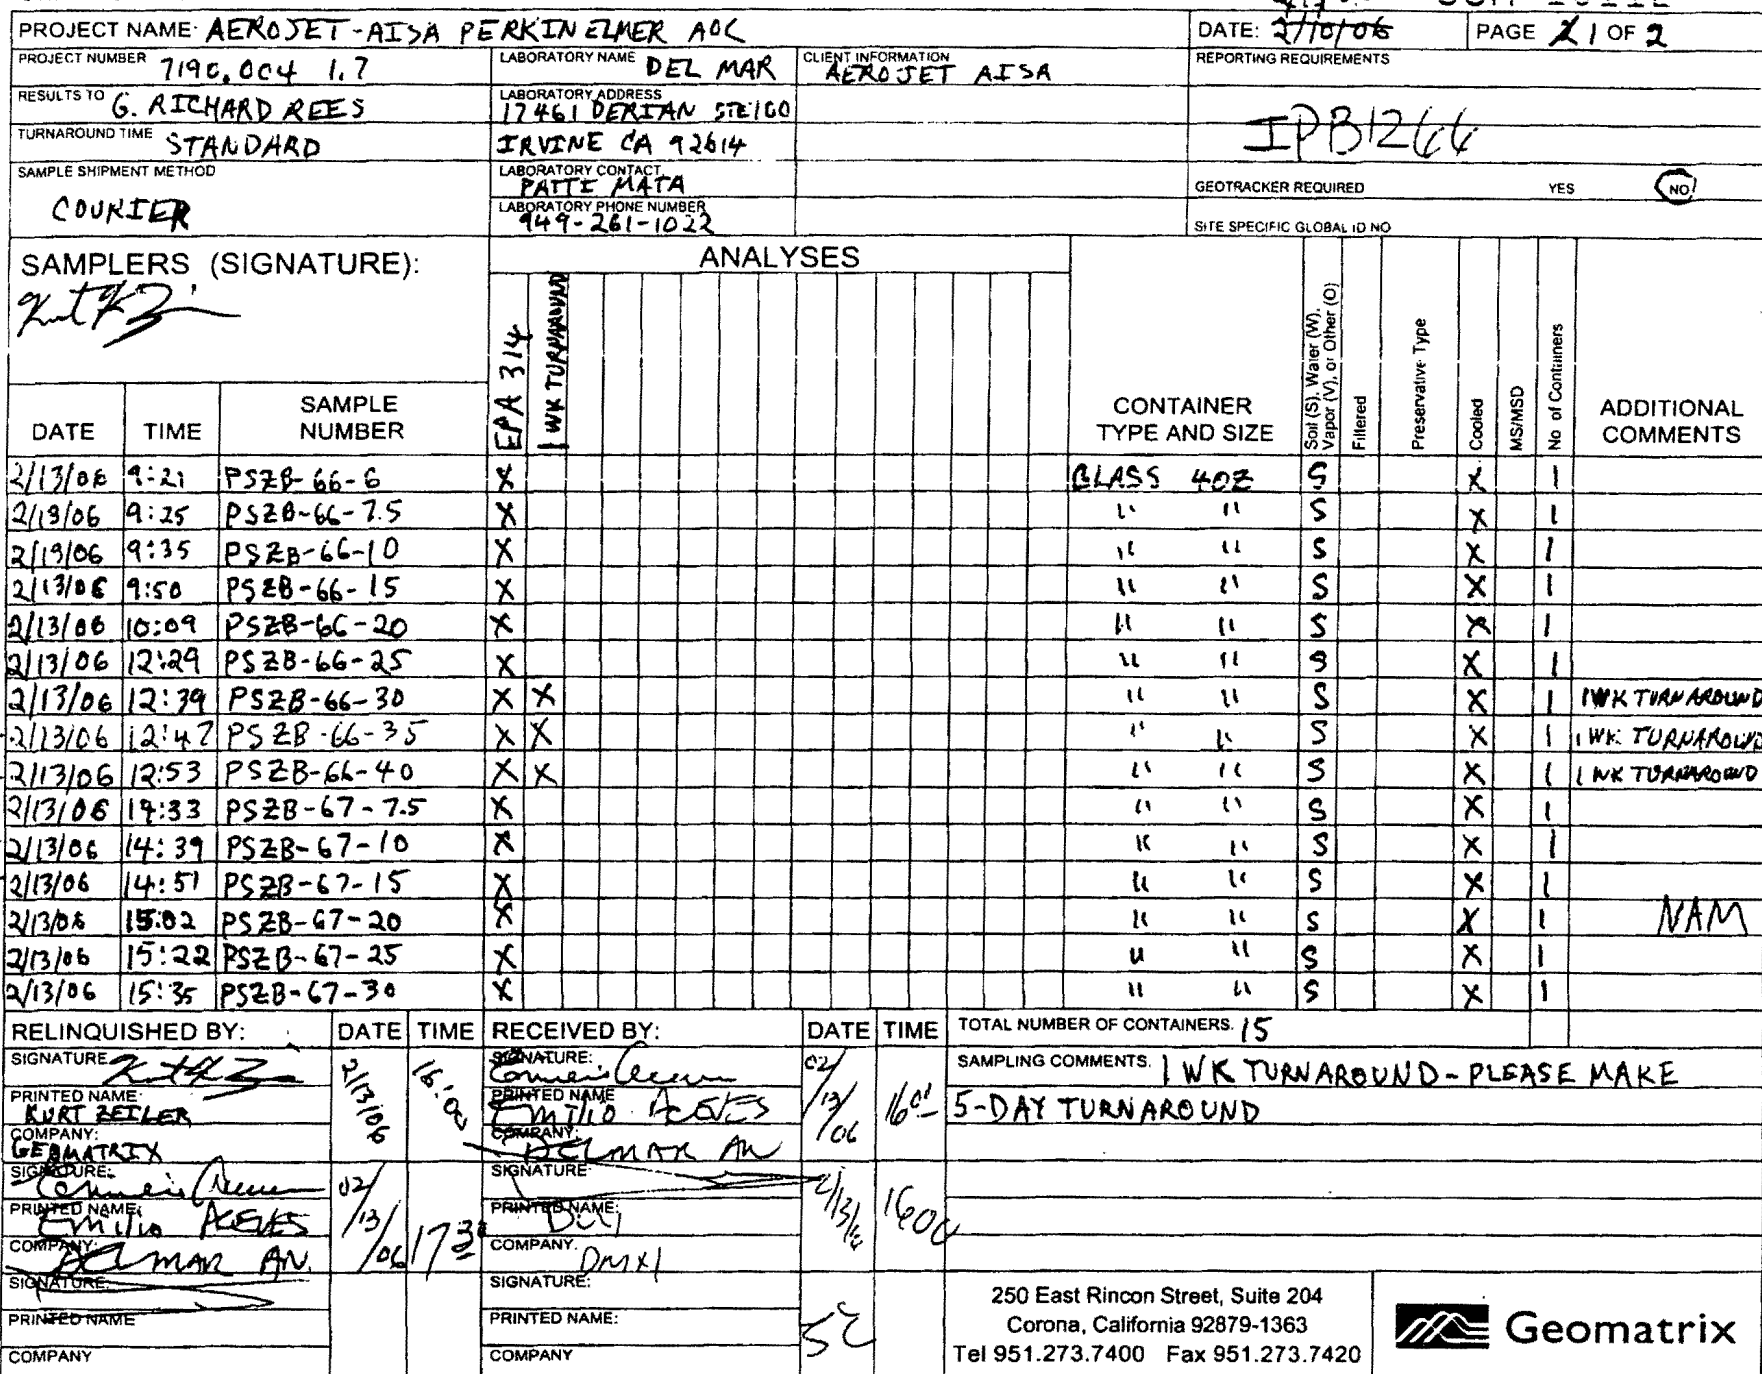 PROJECT NAME: AEROJET-AISA PERKIN ELMER AOC DATE: 2/10/06 PAGE 1 OF 2
PROJECT NUMBER 7190.004 1.7 LABORATORY NAME DEL MAR CLIENT INFORMATION AEROJET AISA REPORTING REQUIREMENTS
RESULTS TO G. RICHARD REES LABORATORY ADDRESS 17461 DERIAN STE100
IPB1266
TURNAROUND TIME STANDARD IRVINE CA 92614
SAMPLE SHIPMENT METHOD COURIER LABORATORY CONTACT PATTI MATA GEOTRACKER REQUIRED YES NO
LABORATORY PHONE NUMBER 949-261-1022 SITE SPECIFIC GLOBAL ID NO
SAMPLERS (SIGNATURE): ANALYSES
EPA 314 1 WK TURNAROUND
Soil (S), Water (W), Vapor (V), or Other (O) Filtered Preservative Type Cooled MS/MSD No of Containers
DATE TIME SAMPLE NUMBER CONTAINER TYPE AND SIZE ADDITIONAL COMMENTS
2/13/06 9:21 PSZB-66-6 X GLASS 4OZ S X 1
2/13/06 9:25 PSZB-66-7.5 X " " S X 1
2/13/06 9:35 PSZB-66-10 X " " S X 1
2/13/06 9:50 PSZB-66-15 X " " S X 1
2/13/06 10:09 PSZB-66-20 X " " S X 1
2/13/06 12:29 PSZB-66-25 X " " S X 1
2/13/06 12:39 PSZB-66-30 X X " " S X 1 1WK TURNAROUND
2/13/06 12:47 PSZB-66-35 X X " " S X 1 1 WK TURNAROUND
2/13/06 12:53 PSZB-66-40 X X " " S X 1 1 WK TURNAROUND
2/13/06 14:33 PSZB-67-7.5 X " " S X 1
2/13/06 14:39 PSZB-67-10 X " " S X 1
2/13/06 14:51 PSZB-67-15 X " " S X 1
2/13/06 15:02 PSZB-67-20 X " " S X 1 NAM
2/13/06 15:22 PSZB-67-25 X " " S X 1
2/13/06 15:35 PSZB-67-30 X " " S X 1
RELINQUISHED BY: DATE TIME RECEIVED BY: DATE TIME TOTAL NUMBER OF CONTAINERS. 15
SIGNATURE 2/13/06 16:00 SIGNATURE: 02/13/06 SAMPLING COMMENTS. 1 WK TURNAROUND-PLEASE MAKE
PRINTED NAME KURT ZEILER PRINTED NAME EMILIO ACEVES 5-DAY TURNAROUND
COMPANY: GEOMATRIX COMPANY: DELMAR AN
SIGNATURE: 02/13/06 17 30 SIGNATURE 1600
PRINTED NAME: EMILIO ACEVES PRINTED NAME:
COMPANY: DELMAR AN. COMPANY.
SIGNATURE SIGNATURE:
PRINTED NAME PRINTED NAME:
COMPANY COMPANY
250 East Rincon Street, Suite 204
Corona, California 92879-1363
Tel 951.273.7400 Fax 951.273.7420
Geomatrix